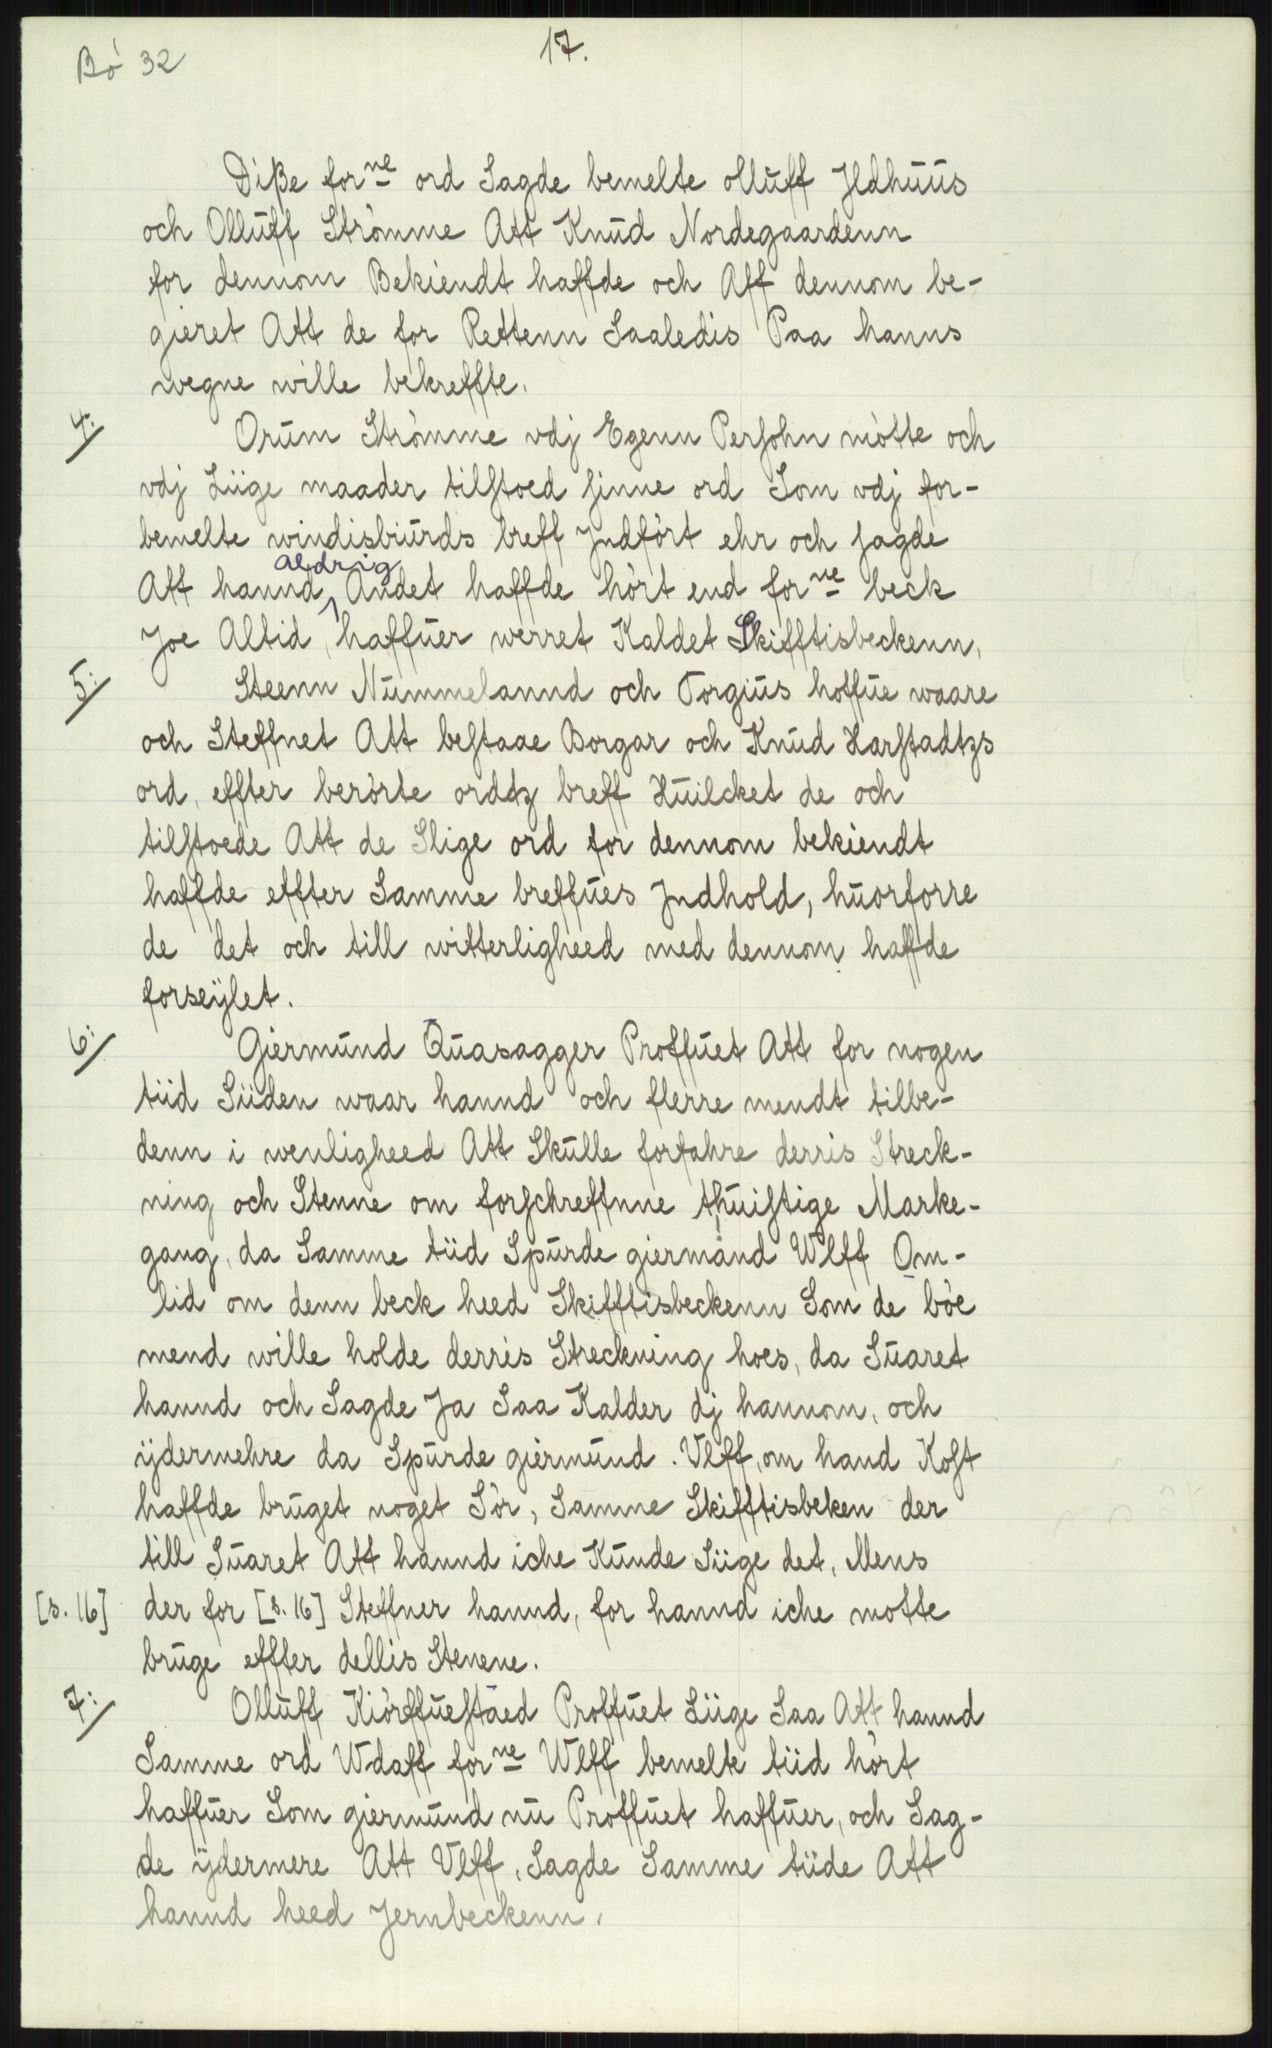 Bö 32
17.
Diße forne ord Sagde bemelte olluff Jldhuus
och Olluff Strömme Att Knud Nordegaardenn
for dennom Bekiendt haffde och Aff dennom be-
gieret Att de for Rettenn Saaledis Paa hanns
wegne wille bekreffte.
4:/ Orum Strömme vdj Egenn Persohn mötte och
vdj Liige maader tilstoed sinne ord Som vdj for-
bemelte windisbiurds breff Jndfört ehr och sagde
Att hannd aldrig Andet haffde hört end forne beck
Joe Altid, haffuer werret Kaldet Skifftisbeckenn,
5:/ Steenn Nummelannd och Torgius hoffue waare
och Steffnet Att bestaae Borgar och Knud Harstadtzs
ord, effter berörte ordtz breff Huilcket de och
tilstoede Att de Slige ord for dennom bekiendt
haffde effter Samme breffues Jndhold, huorforre
de det och till witterligheed med dennom haffde
forseÿlet.
6:/ Giermund Quasagger Proffuet Att for nogen
tiid Siiden waar hannd och flerre mendt tilbe-
denn i wenligheed Att Skulle forfahre derris Streck-
ning och Stenne om forschreffnne thuistige Marke-
gang, da Samme tiid Spurde giermund Wlff Om-
lid om denn beck heed Skifftisbeckenn Som de böe
mend wille holde derris Streckning hoes, da Suaret
hannd och Sagde Ja Saa Kalder dj hannom, och
ÿdermehre da Spurde giermund. Vlff, om hand Kost
haffde bruget noget Sör, Samme Skifftisbeken der
till Suaret Att hannd iche Kunde Siige det, Mens
[s. 16] der for [s. 16] Steffner hannd, for hannd iche motte
bruge effter dellis Stenene.
7:/ Olluff Kiörffuestaed Proffuet Liige Saa Att hannd
Samme ord Wdaff forne Wlff bemelte tiid hört
haffuer Som giermund nu Proffuet haffuer, och Sag-
de ÿdermere Att Vlff, Sagde Samme tiide Att
hannd heed Jernbeckenn.